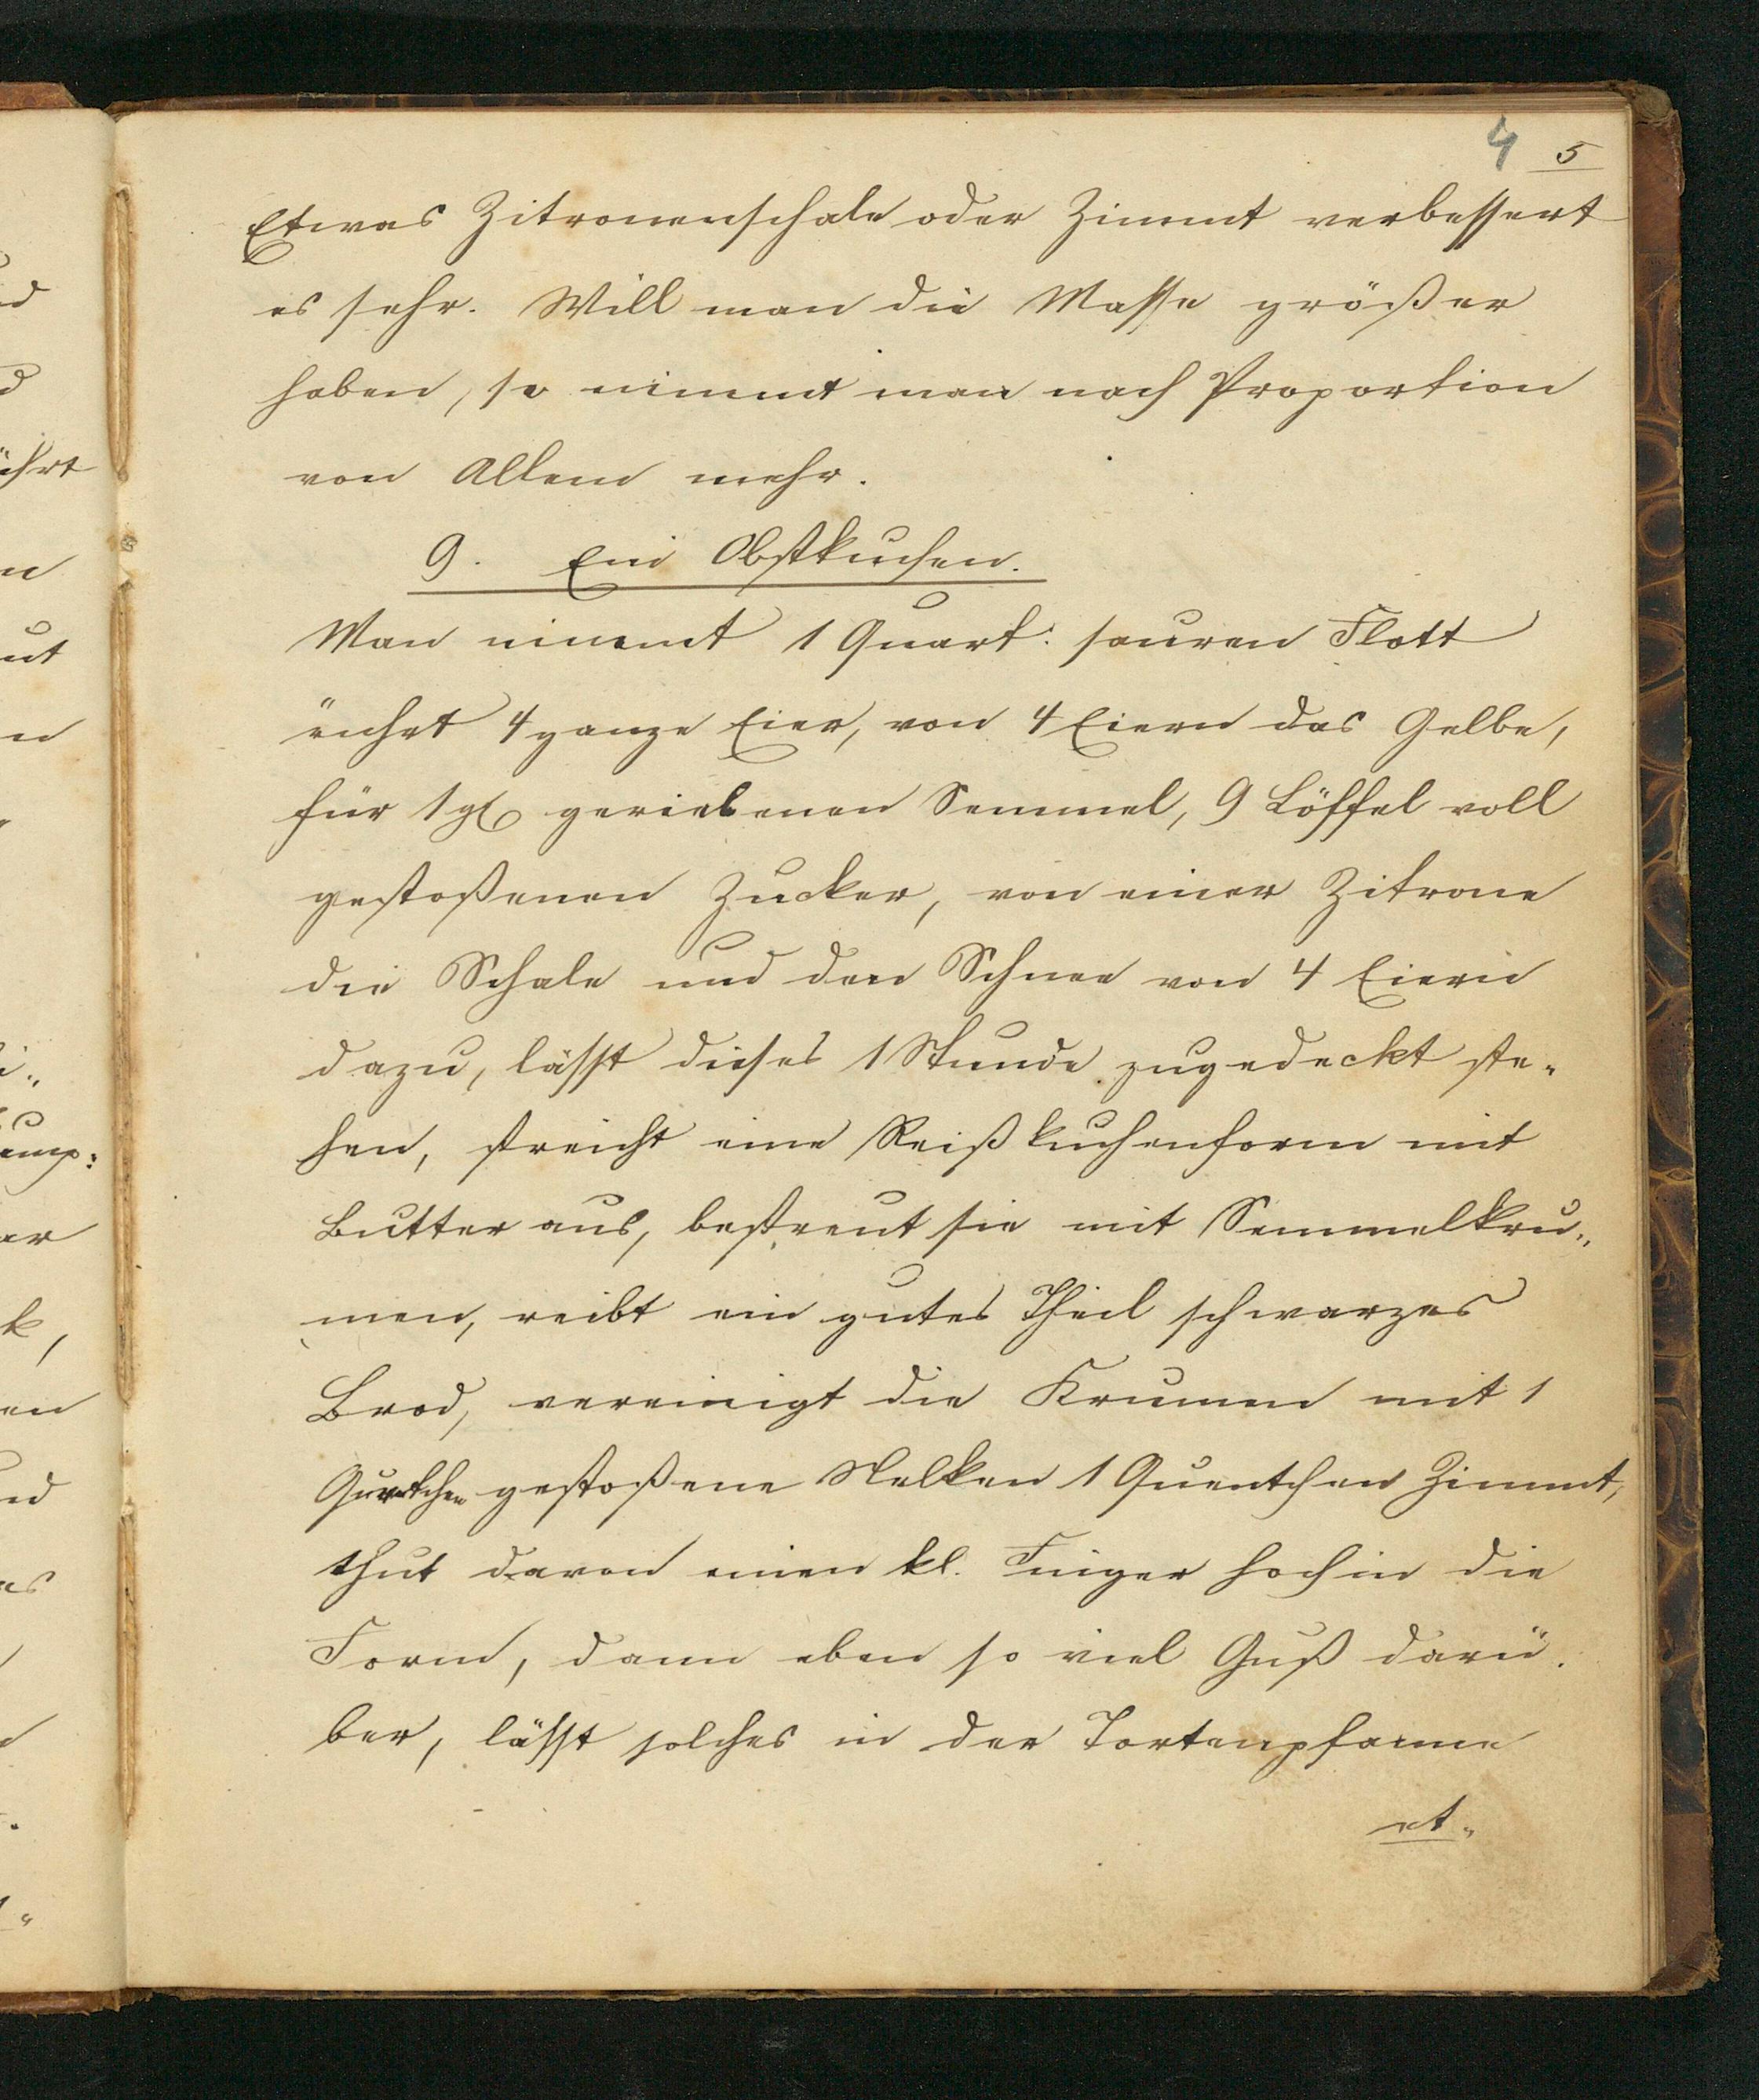 4 5
Etwas Zitronenschale oder Zimmt verbessert
es sehr. Will man die Masse größer
haben, so nimmt man nach Proportion
von Allem mehr.
9. Ein Obstkuchen.
Man nimmt 1 Quart: sauren Flott
rührt 4 ganze Eier, von 4 Eiern das Gelbe,
für 1 gl geriebenen Semmel, 9 Löffel voll
gestoßenen Zucker, von einer Zitrone
die Schale und den Schnee von 4 Eiern
dazu, lässt dieses 1 Stunde zugedeckt ste„
hen, streicht eine Reißkuchenform mit
Butter aus, bestreut sie mit Semmelkru„
men, reibt ein gutes Theil schwarzes
Brod, vereinigt die Krumen mit 1
Quentchen gestoßene Nelken 1 Quentchen Zimmt,
thut davon einen kl. Finger hoch in die
Form, dann eben so viel Guß darü„
ber, lässt solches in der Tortenpfanne
et„
ührt